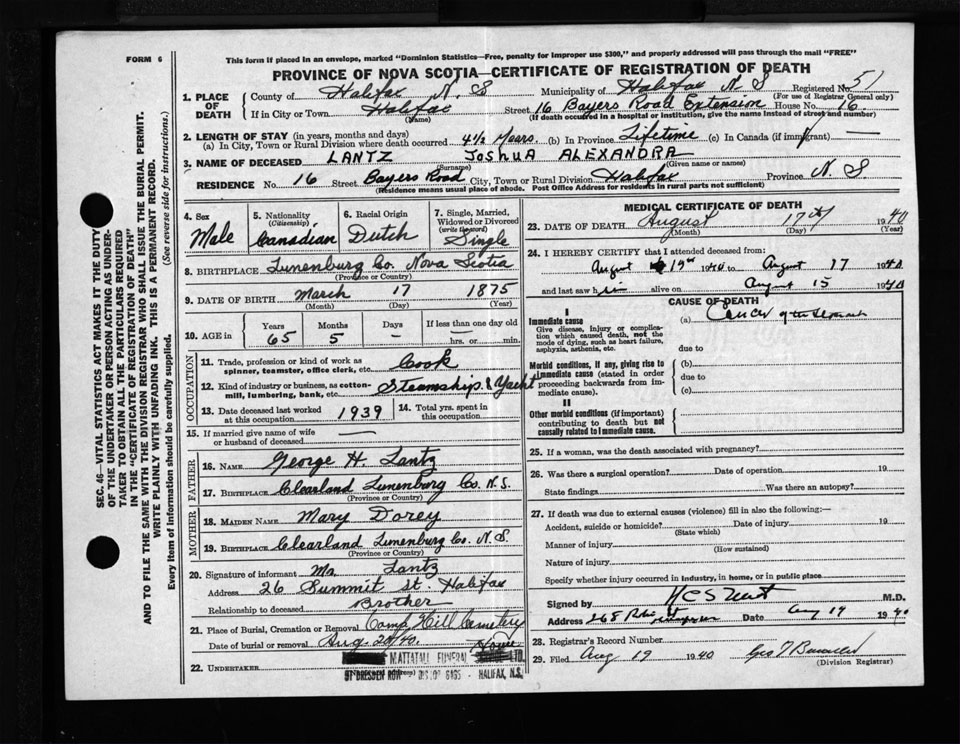 FORM 6
This form if placed in an envelope, marked "Dominion Statistics—Free, penalty for improper use $300," and properly addressed will pass through the mail "FREE"
PROVINCE OF NOVA SCOTIA—CERTIFICATE OF REGISTRATION OF DEATH
1. PLACE OF DEATH
County of Halifax N. S Municipality of Halifax N S Registered No. 51
(For use of Registrar General only)
If in City or Town Halifax Street 16 Bayers Road Extension House No. 16
(Name) (If death occurred in a hospital or institution, give the name instead of street and number)
2. LENGTH OF STAY (in years, months and days)
(a) In City, Town or Rural Division where death occurred 4½ Years. (b) In Province Lifetime (c) In Canada (if immigrant) —
3. NAME OF DECEASED LANTZ JOSHUA ALEXANDRA
(Surname) (Given name or names)
RESIDENCE No. 16 Street Bayers Road City, Town or Rural Division Halifax Province N. S
(Residence means usual place of abode. Post Office Address for residents in rural parts not sufficient)
4. Sex Male
5. Nationality (Citizenship) Canadian
6. Racial Origin Dutch
7. Single, Married, Widowed or Divorced (write the word) Single
8. BIRTHPLACE Lunenburg Co. Nova Scotia
(Province or Country)
9. DATE OF BIRTH March 17 1875
(Month) (Day) (Year)
10. AGE in Years Months Days If less than one day old
65 5 — hrs. or min.
OCCUPATION
11. Trade, profession or kind of work as spinner, teamster, office clerk, etc. Cook
12. Kind of industry or business, as cotton-mill, lumbering, bank, etc. Steamship & Yacht
13. Date deceased last worked at this occupation 1939
14. Total yrs. spent in this occupation
15. If married give name of wife or husband of deceased —
FATHER
16. NAME George H. Lantz
17. BIRTHPLACE Clearland Lunenburg Co. N.S.
(Province or Country)
MOTHER
18. MAIDEN NAME Mary Dorey
19. BIRTHPLACE Clearland Lunenburg Co. N.S.
(Province or Country)
20. Signature of informant Lantz
Address 26 Summit St. Halifax
Relationship to deceased Brother
21. Place of Burial, Cremation or Removal Camp Hill Cemetery
Date of burial or removal Aug. 20/40.
22. UNDERTAKER MATTATALL FUNERAL Home LTD.
DRESDEN ROW HALIFAX, N.S.
MEDICAL CERTIFICATE OF DEATH
23. DATE OF DEATH August 17th 1940
(Month) (Day)
24. I HEREBY CERTIFY that I attended deceased from:
August 1940 to August 17 1940
and last saw him alive on August 15 1940
CAUSE OF DEATH
I
Immediate cause
Give disease, injury or complication which caused death, not the mode of dying, such as heart failure, asphyxia, asthenia, etc.
(a) Cancer of the
due to
Morbid conditions, if any, giving rise to immediate cause (stated in order proceeding backwards from immediate cause).
(b)
due to
(c)
II
Other morbid conditions (if important) contributing to death but not causally related to immediate cause.
25. If a woman, was the death associated with pregnancy?
26. Was there a surgical operation? Date of operation 19
State findings Was there an autopsy?
27. If death was due to external causes (violence) fill in also the following:—
Accident, suicide or homicide? Date of injury 19
(State which)
Manner of injury
(How sustained)
Nature of injury
Specify whether injury occurred in industry, in home, or in public place
Signed by M.D.
Address 268 Date Aug 19 1940
28. Registrar's Record Number
29. Filed Aug 19 1940
(Division Registrar)
SEC. 46—VITAL STATISTICS ACT MAKES IT THE DUTY
OF THE UNDERTAKER OR PERSON ACTING AS UNDER-
TAKER TO OBTAIN ALL THE PARTICULARS REQUIRED
IN THE "CERTIFICATE OF REGISTRATION OF DEATH"
AND TO FILE THE SAME WITH THE DIVISION REGISTRAR WHO SHALL ISSUE THE BURIAL PERMIT.
WRITE PLAINLY WITH UNFADING INK. THIS IS A PERMANENT RECORD.
Every item of information should be carefully supplied. (See reverse side for instructions.)